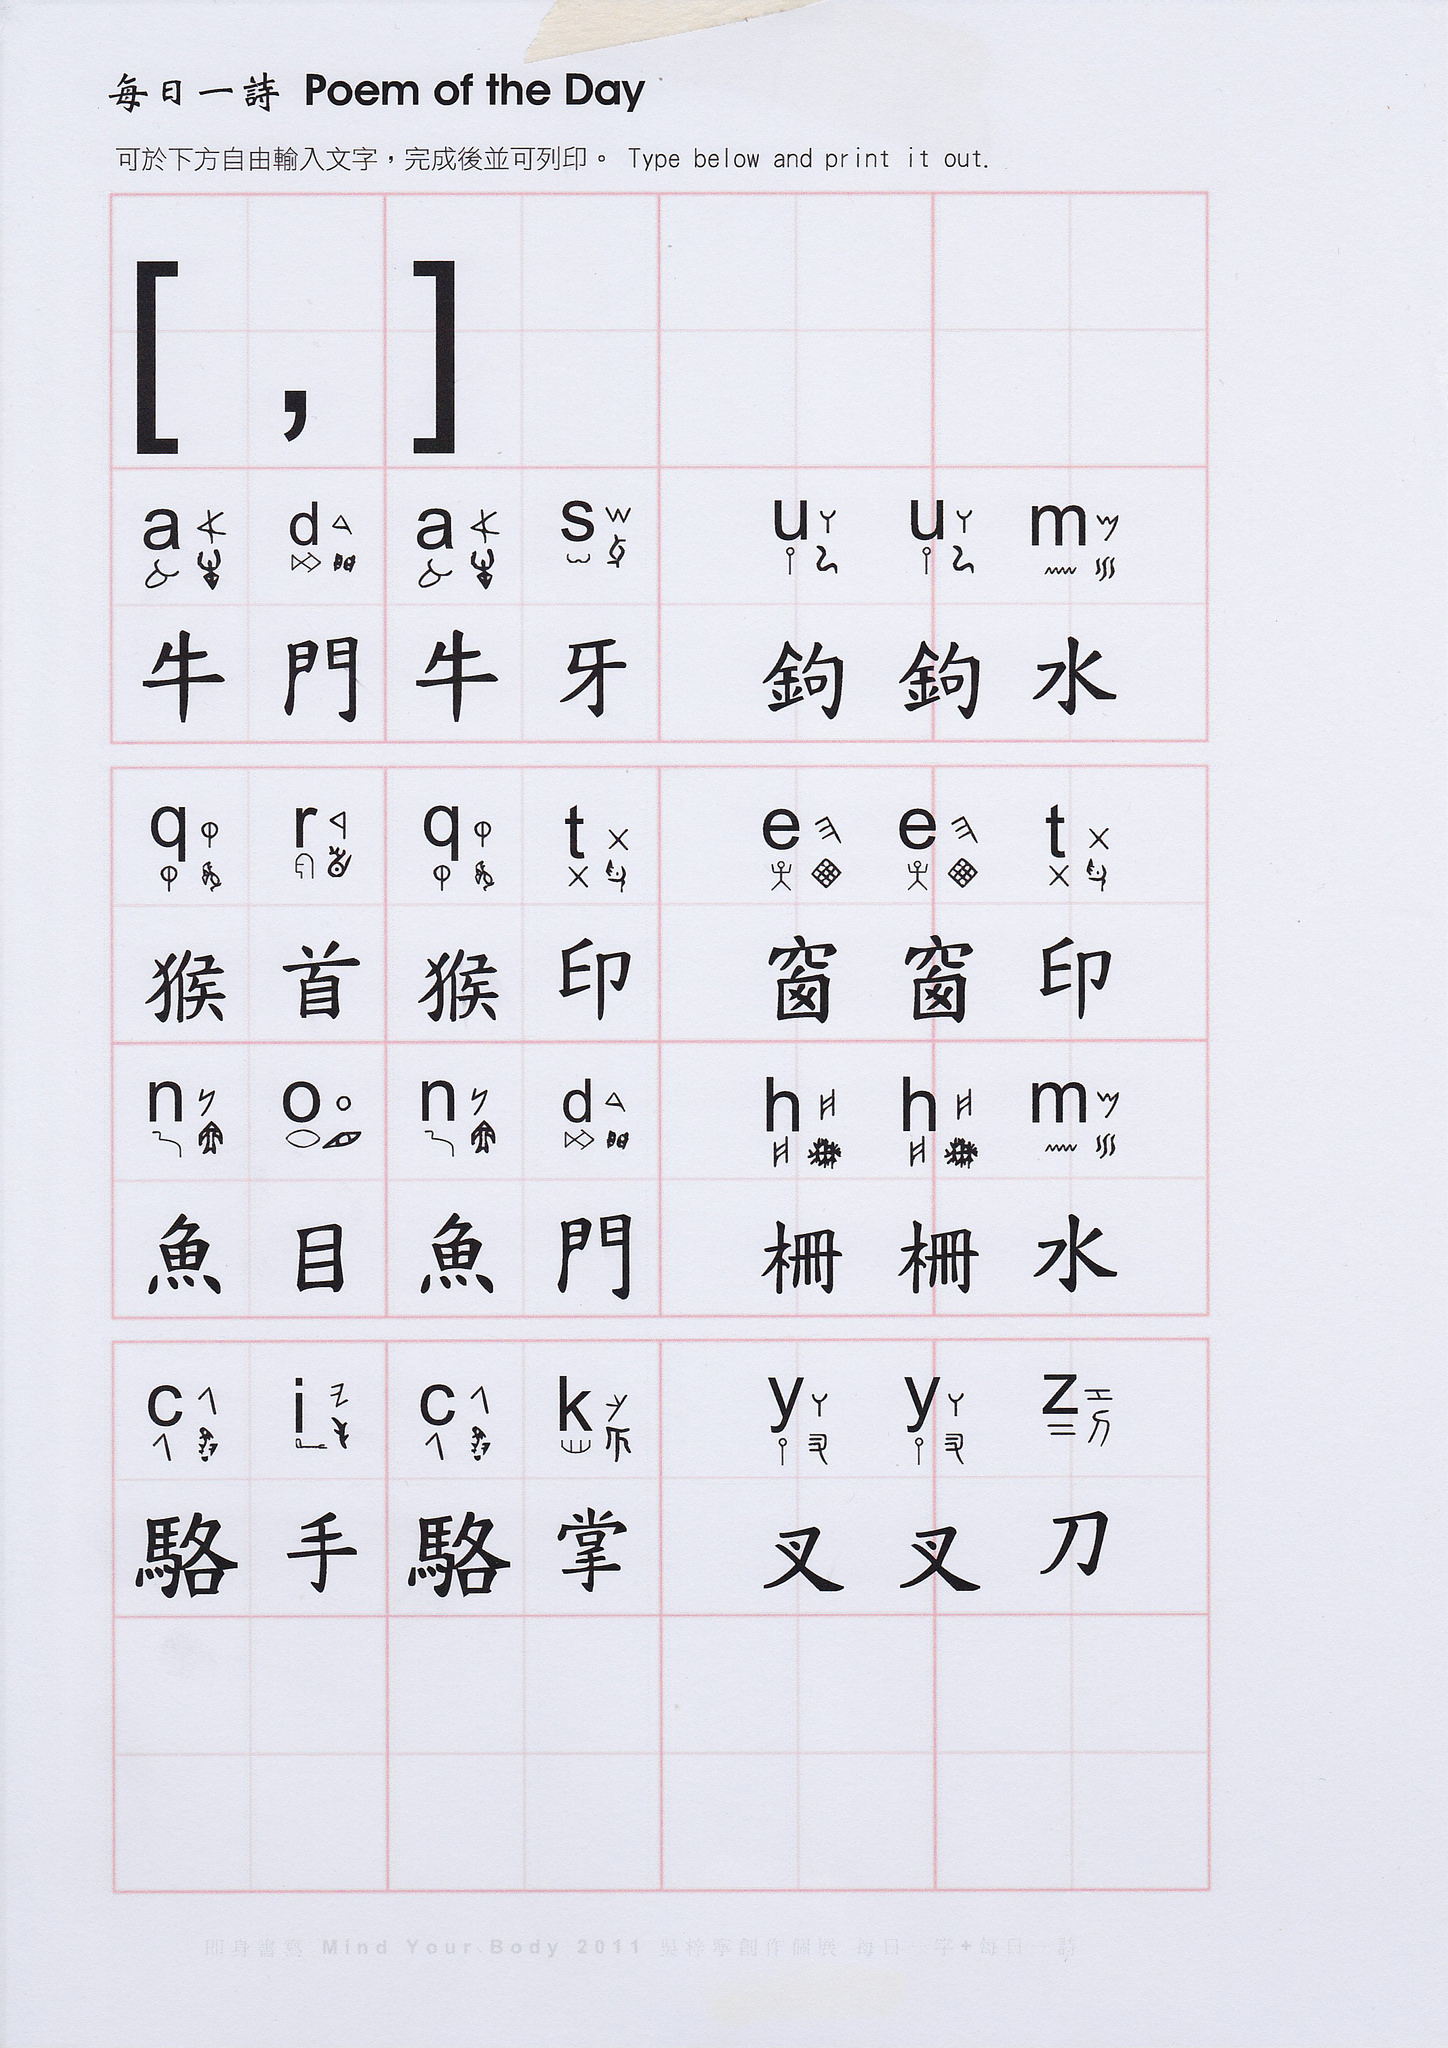 每日一詩 Poem of the Day
可於下方自由輸入文字，完成後並可列印。 Type below and print it out.
[ , ]
a d a s u u m
牛 門 牛 牙 鉤 鉤 水
q r q t e e t
猴 首 猴 印 窗 窗 印
n o n d h h m
魚 目 魚 門 柵 柵 水
c i c k y y z
駱 手 駱 掌 叉 叉 刀
即身書寫 Mind Your Body 2011 吳梓寧創作個展 每日一字+每日一詩